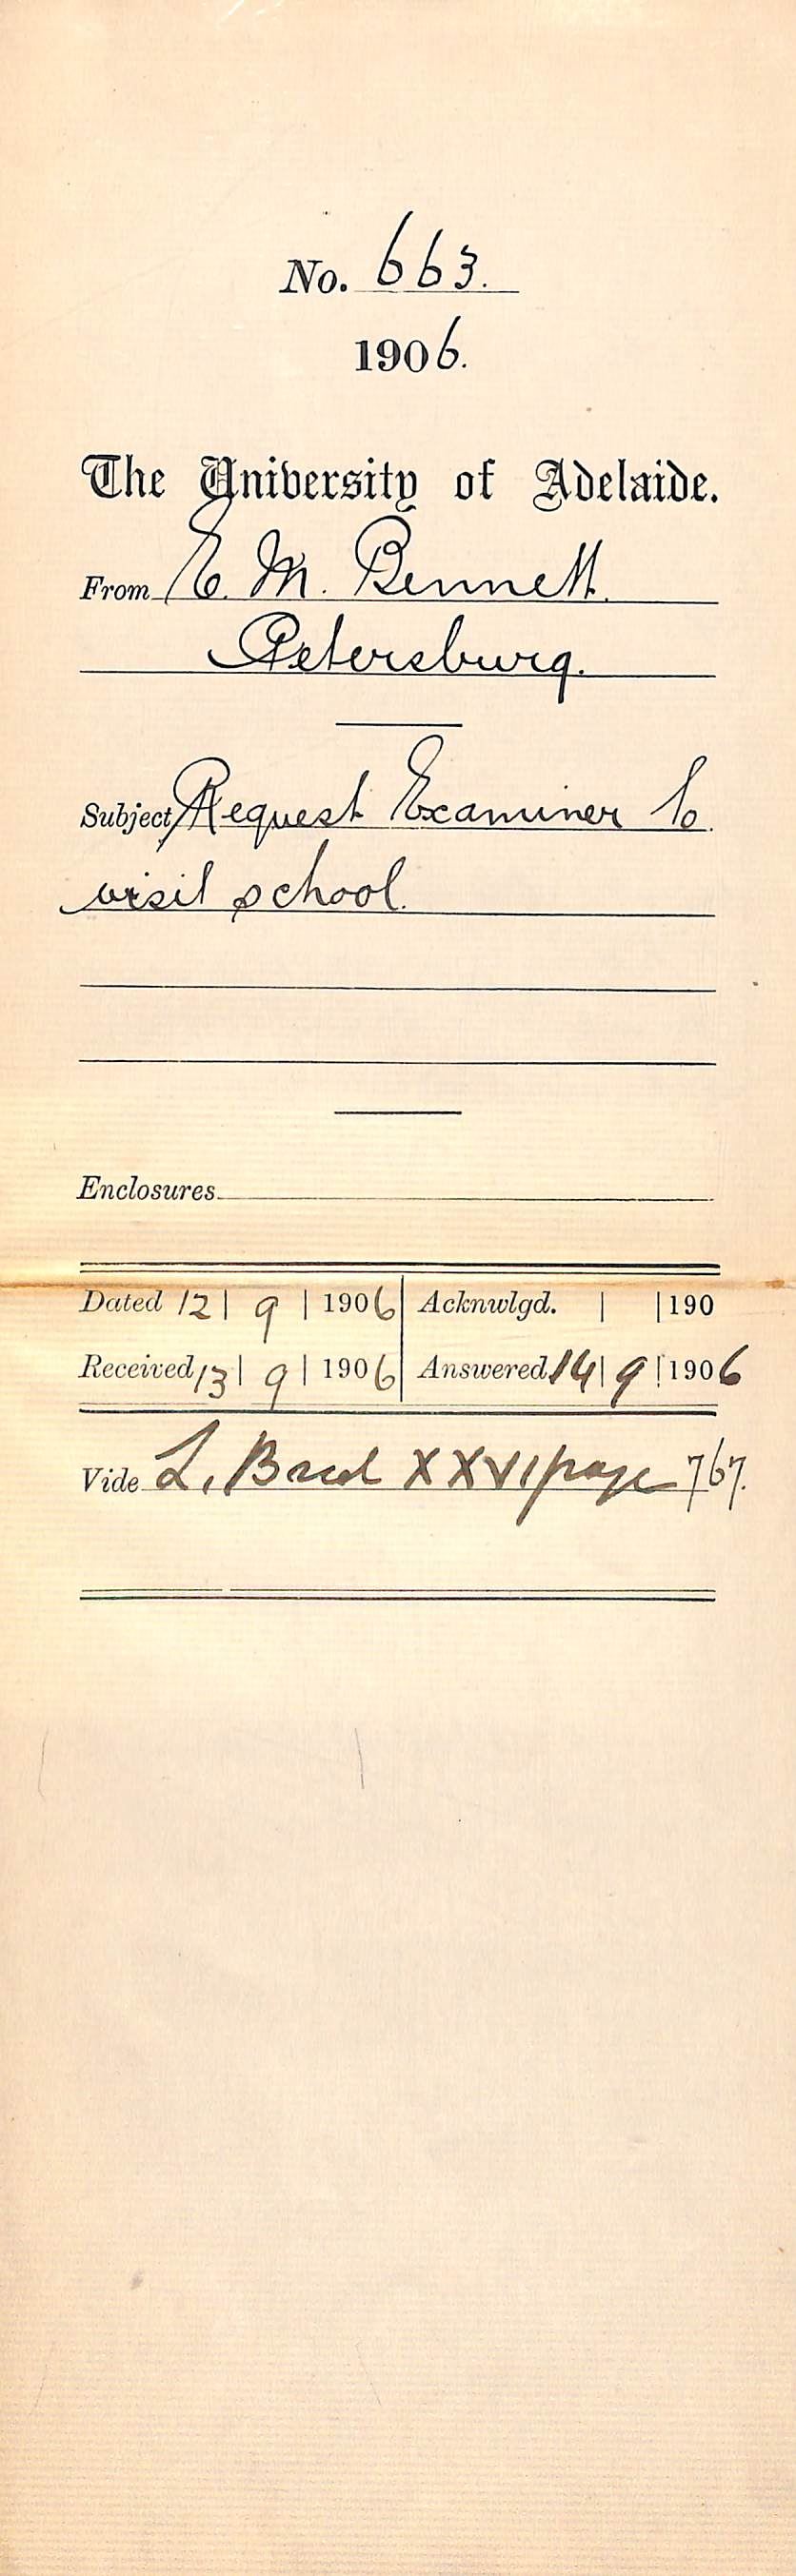 No. 663.
1906.
The University of Adelaide.
From E. M. Bennett.
Petersburg.
Subject Request Examiner to
visit school.
Enclosures
Dated 12 | 9 | 1906 Acknwlgd. | | 190
Received 13 | 9 | 1906 Answered 14 | 9 | 1906
Vide L. XXVI page 767.